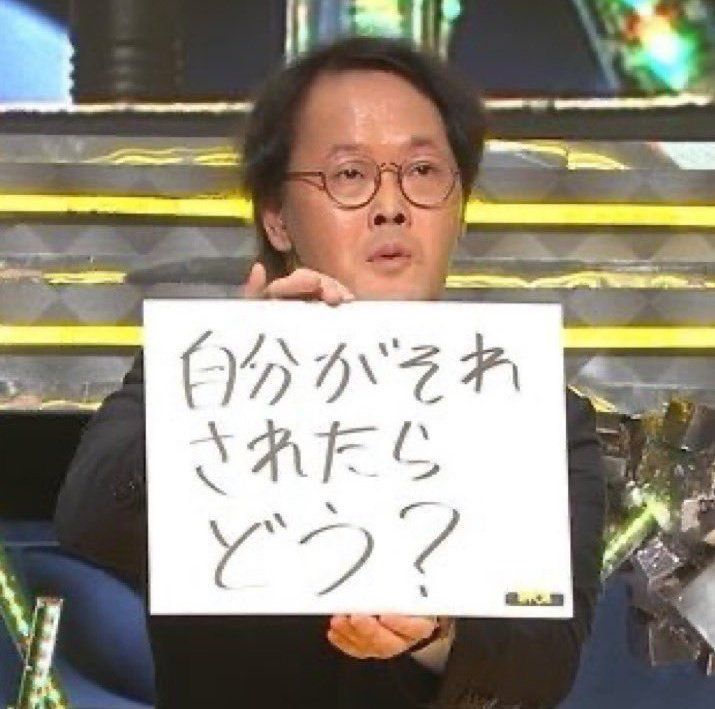 自分がそれ
されたら
どう?